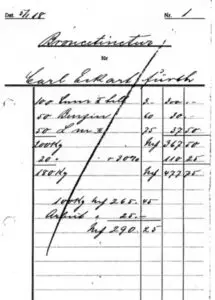 Dat. 5/1 08 Nr. 1
Broncetinctur
für
Carl Eckart Fürth
100 2. 200.–
50 Benzin 60 30.–
50 75 37.50
200 Kg M 267.50
20 " 20% 110.25
180 Kg M 477.75
100 Kg M 265.45
Arbeit " 25.–
M 290.25